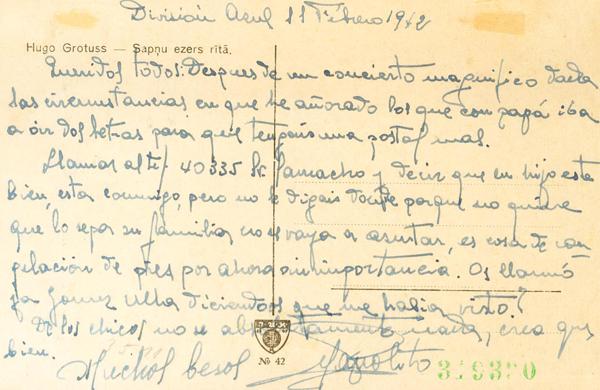 División Azul 11 Febrero 1942
Hugo Grotuss — Sapņu ezers rītā.
Queridos todos: Despues de un concierto magnifico dadas
las circunstancias en que he añorado los que con papá iba
a oir dos letras para que tengais una postal mas.
Llamar al tf. 40335 Sr. Camacho y decir que su hijo esta
bien, esta conmigo, pero no le digais donde porque no quiere
que lo sepa su familia no se vaya a asustar, es cosa de con
gelación de pies por ahora sin importancia. Os llamó
Gomez Ulla diciendoos que me habia visto?
De los chicos no se absolutamente nada, creo que
bien.
Muchos besos
Nº 42
319380